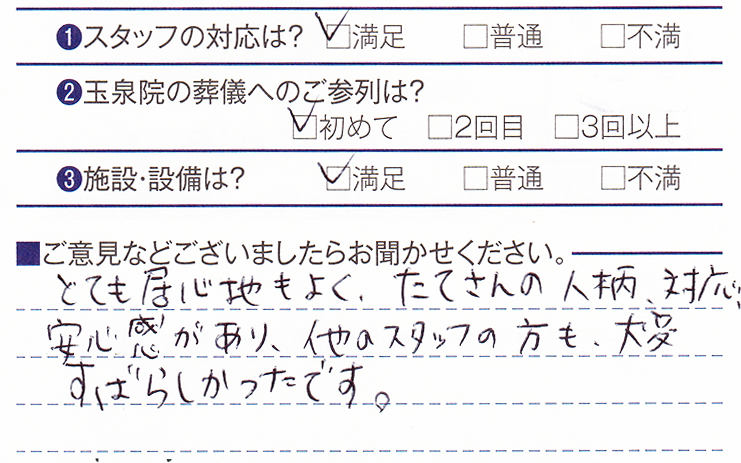 ❶スタッフの対応は? ☑満足 □普通 □不満
❷玉泉院の葬儀へのご参列は?
☑初めて □2回目 □3回以上
❸施設・設備は? ☑満足 □普通 □不満
■ご意見などございましたらお聞かせください。
とても居心地もよく、たてさんの人柄、対応、
安心感があり、他のスタッフの方も、大変
すばらしかったです。